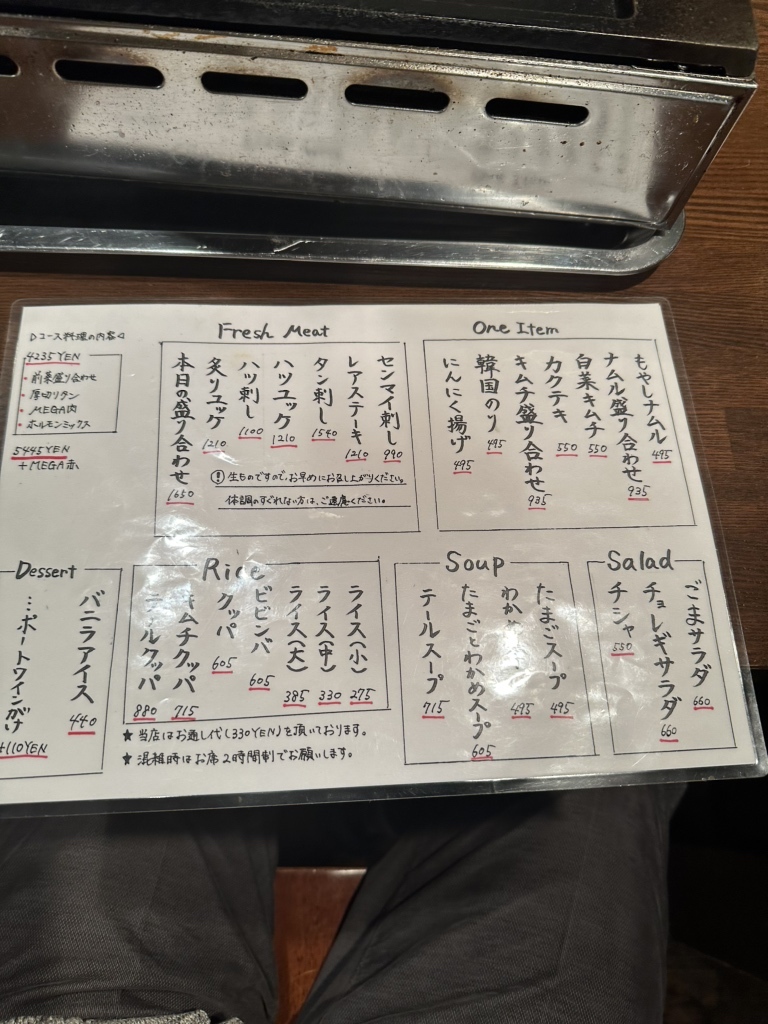 Dコース料理の内容
4235YEN
・前菜盛り合わせ
・厚切りタン
・MEGA肉
・ホルモンミックス
5445YEN
+MEGA赤
Fresh Meat
センマイ刺し 990
レアステーキ 1210
タン刺し 1540
ハツユッケ 1210
ハツ刺し 1100
炙りユッケ 1210
本日の盛り合わせ 1650
! 生ものですので、お早めにお召し上がりください。
体調のすぐれない方は、ご遠慮ください。
One Item
もやしナムル 495
ナムル盛り合わせ 935
白菜キムチ 550
カクテキ 550
キムチ盛り合わせ 935
韓国のり 495
にんにく揚げ 495
Dessert
バニラアイス 440
…ポートワインがけ +110YEN
Rice
ライス(小) 275
ライス(中) 330
ライス(大) 385
ビビンバ 605
クッパ 605
キムチクッパ 715
テールクッパ 880
★当店はお通し代(330YEN)を頂いております。
★混雑時はお席2時間制でお願いします。
Soup
たまごスープ 495
わか 495
たまごとわかめスープ 605
テールスープ 715
Salad
ごまサラダ 660
チョレギサラダ 660
チシャ 550